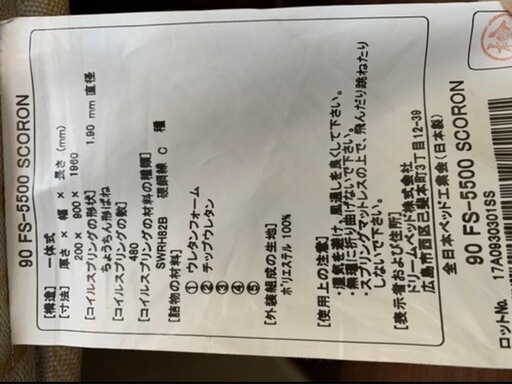 90 FS-5500 SCORON
[構造] 一体式
[寸法] 厚さ × 幅 × 長さ (mm)
200 × 900 × 1960
[コイルスプリングの形状] 1.90 mm 直径
ちょうちん形ばね
[コイルスプリングの数]
480
[コイルスプリングの材料の種類]
SWRH82B 硬鋼線 C 種
[詰物の材料]
① ウレタンフォーム
② チップウレタン
③
④
⑤
[外装組成の生地]
ポリエステル 100%
[使用上の注意]
・湿気を避け、風通しを良くして下さい。
・無理に折り曲げないで下さい。
・スプリングマットレスの上で、飛んだり跳ねたり
しないで下さい。
[表示者および住所]
ドリームベッド株式会社
広島市西区己斐本町3丁目12-39
全日本ベッド工業会(日本製)
90 FS-5500 SCORON
ロットNo. 17A0930301SS